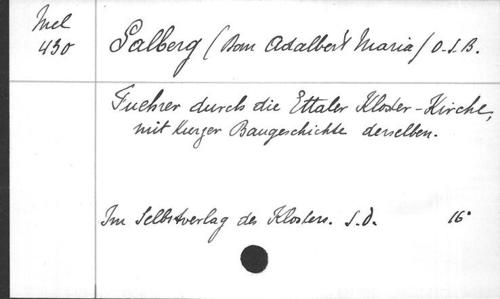 Mel
430
Salberg (Dom Adalbert Maria) O.S.B.
Fuehrer durch die Ettaler Kloster-Kirche,
mit kurzer Baugeschichte derselben.
Im Selbstverlag des Klosters. S.D. 16°